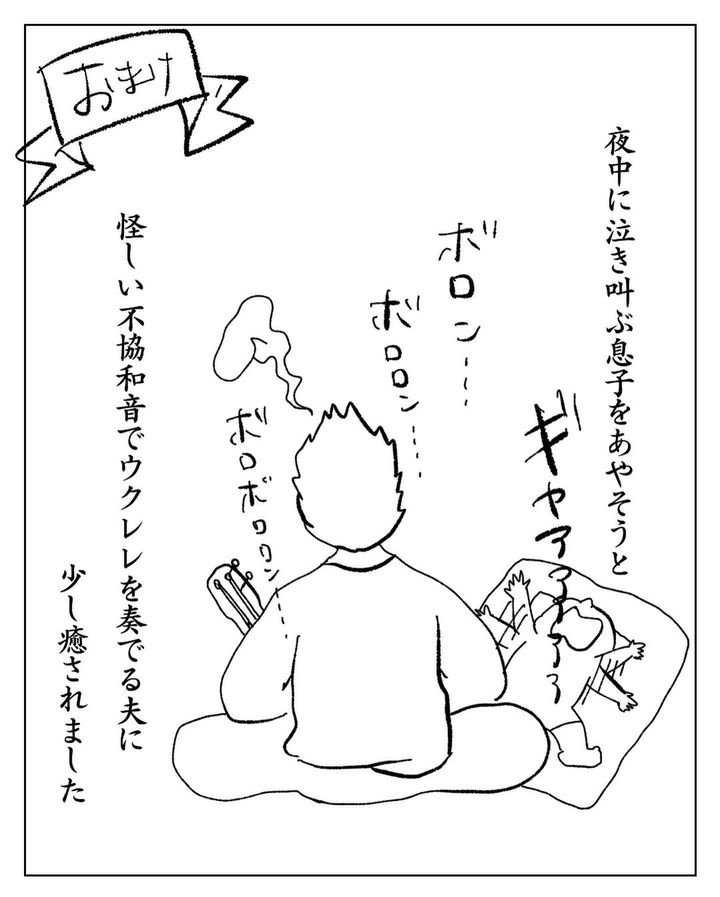 おまけ
夜中に泣き叫ぶ息子をあやそうと
ギャアアアアアア
ボロン...
ボロロン....
ボロボロロン....
怪しい不協和音でウクレレを奏でる夫に
少し癒されました